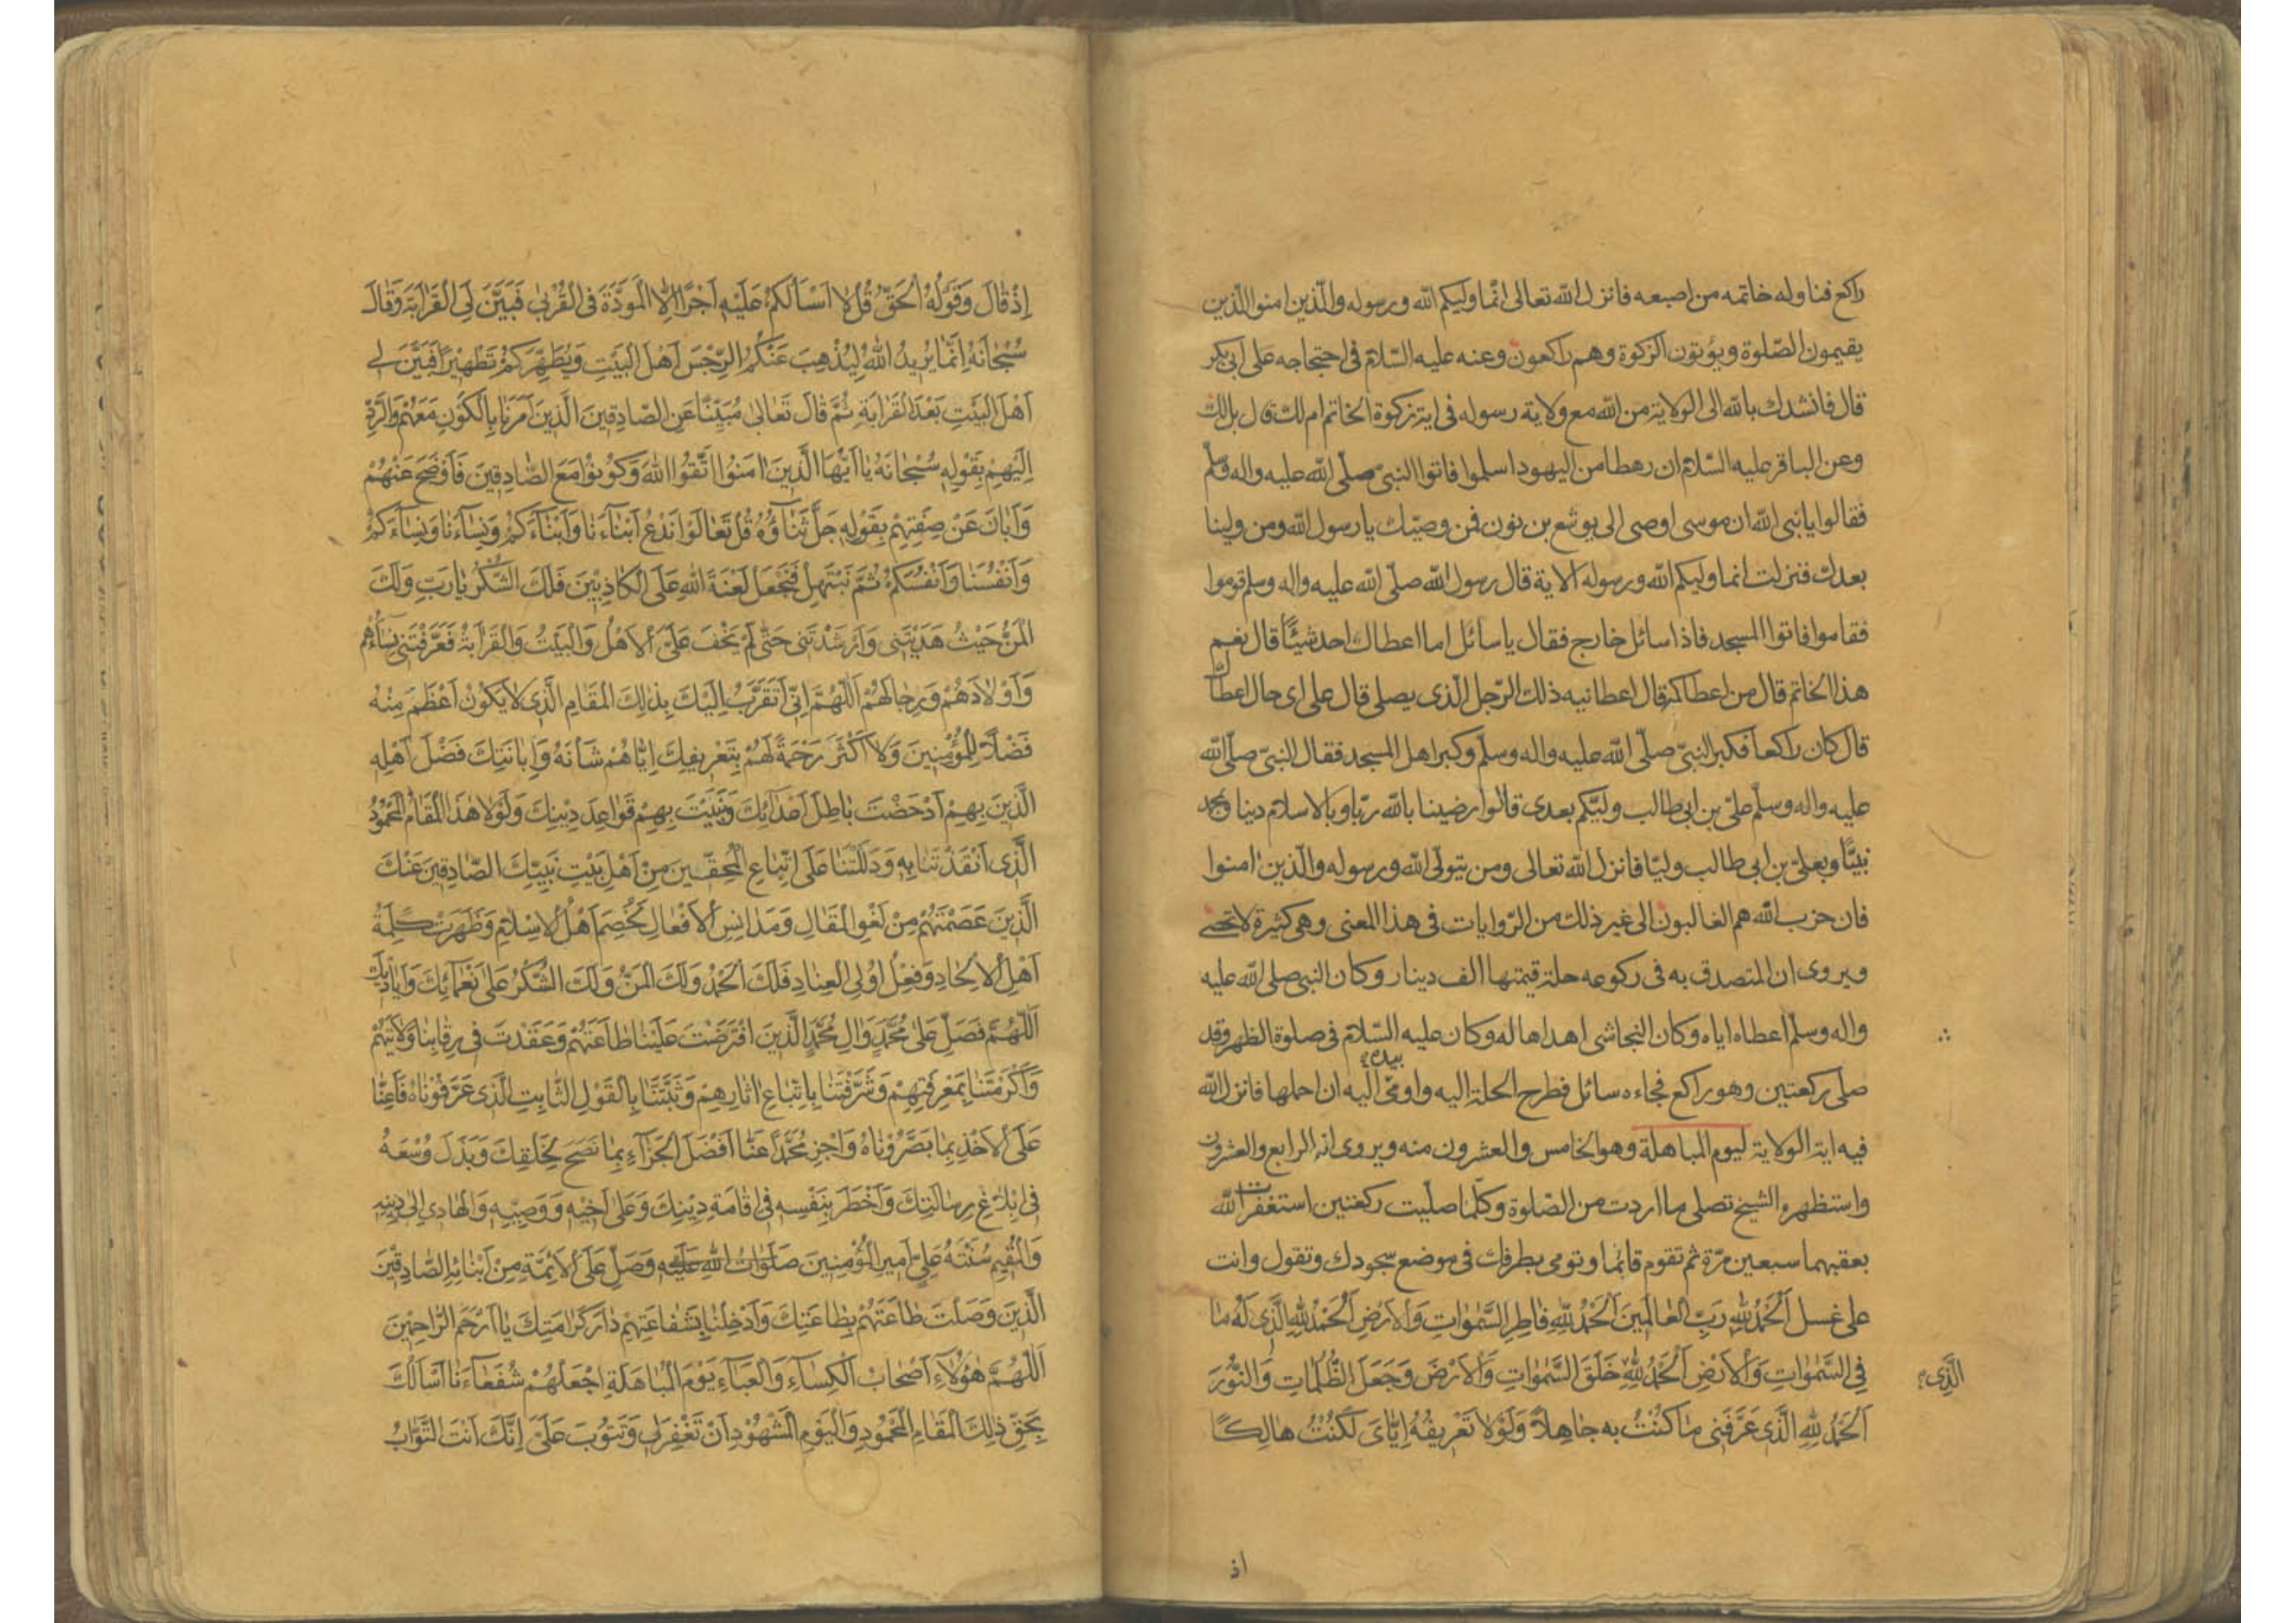 راكع فناوله خاتمه من اصبعه فانزل الله تعالى انّما وليكم الله ورسوله والّذين امنوا الّذين
يقيمون الصّلوة ويؤتون الزكوة وهم راكعون وعنه عليه السّلام فى احتجاجه على ابى بكر
قال فانشدك بالله الى الولاية من الله مع ولاية رسوله فى اية زكوة الخاتم ام لك قال بل لك
وعن الباقر عليه السّلام ان رهطا من اليهود اسلموا فاتوا النبىّ صلّى الله عليه واله وسلّم
فقالوا يا نبى الله ان موسى اوصى الى يوشع بن نون فمن وصيّك يا رسول الله ومن ولينا
بعدك فنزلت انما وليكم الله ورسوله الاية قال رسول الله صلّى الله عليه واله وسلم قوموا
فقاموا فاتوا المسجد فاذا سائل خارج فقال يا سائل اما اعطاك احد شيئًا قال نعم
هذا الخاتم قال من اعطاكه قال اعطانيه ذلك الرّجل الّذى يصلى قال على اى حال اعطاك
قال كان راكعا فكبر النبىّ صلّى الله عليه واله وسلّم وكبر اهل المسجد فقال النبىّ صلّى الله
عليه واله وسلّم علىّ بن ابى طالب وليّكم بعدى قالوا رضينا بالله ربّا وبالاسلام دينا وبمحمد
نبيًّا وبعلىّ بن ابى طالب وليّا فانزل الله تعالى ومن يتولّى الله ورسوله والّذين امنوا
فان حزب الله هم الغالبون الى غير ذلك من الرّوايات فى هذا المعنى وهى كثيرة لا تحصى
ويروى ان المتصدق به فى ركوعه حلة قيمتها الف دينار وكان النبى صلى الله عليه
واله وسلّم اعطاه اياه وكان النجاشى اهداها له وكان عليه السّلام فى صلوة الظهر وقد
بيده
صلى ركعتين وهو راكع فجاءه سائل فطرح الحلة اليه واومئ اليه ان احملها فانزل الله
فيه اية الولاية ليوم المباهلة وهو الخامس والعشرون منه ويروى انه الرابع والعشرون
واستظهره الشيخ تصلى ما اردت من الصّلوة وكلّما صلّيت ركعتين استغفرت الله
بعقبهما سبعين مرّة ثم تقوم قائما وتومى بطرفك فى موضع سجودك وتقول وانت
على غسل اَلْحَمْدُ لِلّٰهِ رَبِّ الْعالَمينَ اَلْحَمْدُ لِلّٰهِ فاطِرِ السَّمٰوٰاتِ وَالْاَرْضِ اَلْحَمْدُ لِلّٰهِ الَّذى لَهُ مٰا
فِى السَّمٰوٰاتِ وَالْاَرْضِ اَلْحَمْدُ لِلّٰهِ خَلَقَ السَّمٰوٰاتِ وَالْاَرْضَ وَجَعَلَ الظُّلُمٰاتِ وَالنُّوْرَ
الَّذِى
اَلْحَمْدُ لِلّٰهِ الَّذى عَرَّفَنى مٰا كُنْتُ بِه جٰاهِلًا وَلَوْلٰا تَعْرِيفُهُ اِيّٰاىَ لَكُنْتُ هٰالِكًا
اذ
اِذْ قٰالَ وَقَوْلُهُ الْحَقُّ قُلْ لٰا اَسْأَلُكُمْ عَلَيْهِ اَجْرًا اِلَّا الْمَوَدَّةَ فِى الْقُرْبٰى فَبَيَّنَ لِىَ الْقَرٰابَةَ وَقٰالَ
سُبْحٰانَهُ اِنَّمٰا يُريدُ اللّٰهُ لِيُذْهِبَ عَنْكُمُ الرِّجْسَ اَهْلَ الْبَيْتِ وَيُطَهِّرَكُمْ تَطْهيْرًا فَبَيَّنَ لى
اَهْلَ الْبَيْتِ بَعْدَ الْقَرٰابَةِ ثُمَّ قٰالَ تَعٰالىٰ مُبَيِّنًا عَنِ الصّٰادِقينَ الَّذينَ اَمَرَنٰا بِالْكَوْنِ مَعَهُمْ وَالرَّدِّ
اِلَيْهِمْ بِقَوْلِهِ سُبْحٰانَهُ يٰا اَيُّهَا الَّذينَ اٰمَنُوا اتَّقُوا اللّٰهَ وَكُوْنُوْا مَعَ الصّٰادِقينَ فَاَوْضَحَ عَنْهُمْ
وَاَبٰانَ عَنْ صِفَتِهِمْ بِقَوْلِهِ جَلَّ ثَنٰاؤُهُ قُلْ تَعٰالَوْا نَدْعُ اَبْنٰاءَنٰا وَاَبْنٰاءَكُمْ وَنِسٰاءَنٰا وَنِسٰاءَكُمْ
وَاَنْفُسَنٰا وَاَنْفُسَكُمْ ثُمَّ نَبْتَهِلْ فَنَجْعَلْ لَعْنَةَ اللّٰهِ عَلَى الْكٰاذِبيْنَ فَلَكَ الشُّكْرُ يٰا رَبِّ وَلَكَ
الْمَنُّ حَيْثُ هَدَيْتَنى وَاَرْشَدْتَنى حَتّٰى لَمْ يَخْفَ عَلَىَّ الْاَهْلُ وَالْبَيْتُ وَالْقَرٰابَةُ فَعَرَّفْتَنى نِسٰاءَهُمْ
وَاَوْلٰادَهُمْ وَرِجٰالَهُمْ اَللّٰهُمَّ اِنّى اَتَقَرَّبُ اِلَيْكَ بِذٰلِكَ الْمَقٰامِ الَّذى لٰا يَكُوْنُ اَعْظَمَ مِنْهُ
فَضْلًا لِلْمُؤْمِنينَ وَلٰا اَكْثَرَ رَحْمَةً لَهُمْ بِتَعْريفِكَ اِيّٰاهُمْ شَأْنَهُ وَاِبٰانَتِكَ فَضْلَ اَهْلِهِ
الَّذينَ بِهِمْ اَدْحَضْتَ بٰاطِلَ اَعْدٰائِكَ وَثَبَّتَّ بِهِمْ قَوٰاعِدَ دِيْنِكَ وَلَوْلٰا هٰذَا الْمَقٰامُ الْمَحْمُوْدُ
الَّذى اَنْقَذْتَنٰا بِهِ وَدَلَلْتَنٰا عَلَى اتِّبٰاعِ الْمُحِقّينَ مِنْ اَهْلِ بَيْتِ نَبِيِّكَ الصّٰادِقينَ عَنْكَ
الَّذينَ عَصَمْتَهُمْ مِنْ لَغْوِ الْمَقٰالِ وَمَدٰانِسِ الْاَفْعٰالِ لَخُصِمَ اَهْلُ الْاِسْلٰامِ وَظَهَرَتْ كَلِمَةُ
اَهْلِ الْاِلْحٰادِ وَفِعْلُ اُولِى الْعِنٰادِ فَلَكَ الْحَمْدُ وَلَكَ الْمَنُّ وَلَكَ الشُّكْرُ عَلىٰ نَعْمٰائِكَ وَاَيٰاديكَ
اَللّٰهُمَّ فَصَلِّ عَلىٰ مُحَمَّدٍ وَاٰلِ مُحَمَّدٍ الَّذينَ افْتَرَضْتَ عَلَيْنٰا طٰاعَتَهُمْ وَعَقَدْتَ فى رِقٰابِنٰا وِلٰايَتَهُمْ
وَاَكْرَمْتَنٰا بِمَعْرِفَتِهِمْ وَشَرَّفْتَنٰا بِاتِّبٰاعِ اٰثٰارِهِمْ وَثَبَّتَّنٰا بِالْقَوْلِ الثّٰابِتِ الَّذى عَرَّفُوْنٰاهُ فَاَعِنّٰا
عَلَى الْاَخْذِ بِمٰا بَصَّرُوْنٰاهُ وَاجْزِ مُحَمَّدًا عَنّٰا اَفْضَلَ الْجَزٰاءِ بِمٰا نَصَحَ لِخَلْقِكَ وَبَذَلَ وُسْعَهُ
فى اِبْلٰاغِ رِسٰالَتِكَ وَاَخْطَرَ بِنَفْسِهِ فى اِقٰامَةِ دِيْنِكَ وَعَلىٰ اَخيْهِ وَوَصِيِّهِ وَالْهٰادى اِلىٰ دينِهِ
وَالْقَيِّمِ سُنَّتَهُ عَلِىٍّ اَميرِ الْمُؤْمِنينَ صَلَوٰاتُ اللّٰهِ عَلَيْهِ وَصَلِّ عَلَى الْاَئِمَّةِ مِنْ اَبْنٰائِهِ الصّٰادِقيْنَ
الَّذينَ وَصَلْتَ طٰاعَتَهُمْ بِطٰاعَتِكَ وَاَدْخِلْنٰا بِشَفٰاعَتِهِمْ دٰارَ كَرٰامَتِكَ يٰا اَرْحَمَ الرّٰاحِمينَ
اَللّٰهُمَّ هٰؤُلٰاءِ اَصْحٰابُ الْكِسٰاءِ وَالْعَبٰاءِ يَوْمَ الْمُبٰاهَلَةِ اِجْعَلْهُمْ شُفَعٰاءَنٰا اَسْاَلُكَ
بِحَقِّ ذٰلِكَ الْمَقٰامِ الْمَحْمُوْدِ وَالْيَوْمِ الْمَشْهُوْدِ اَنْ تَغْفِرَ لى وَتَتُوْبَ عَلَىَّ اِنَّكَ اَنْتَ التَّوّٰابُ